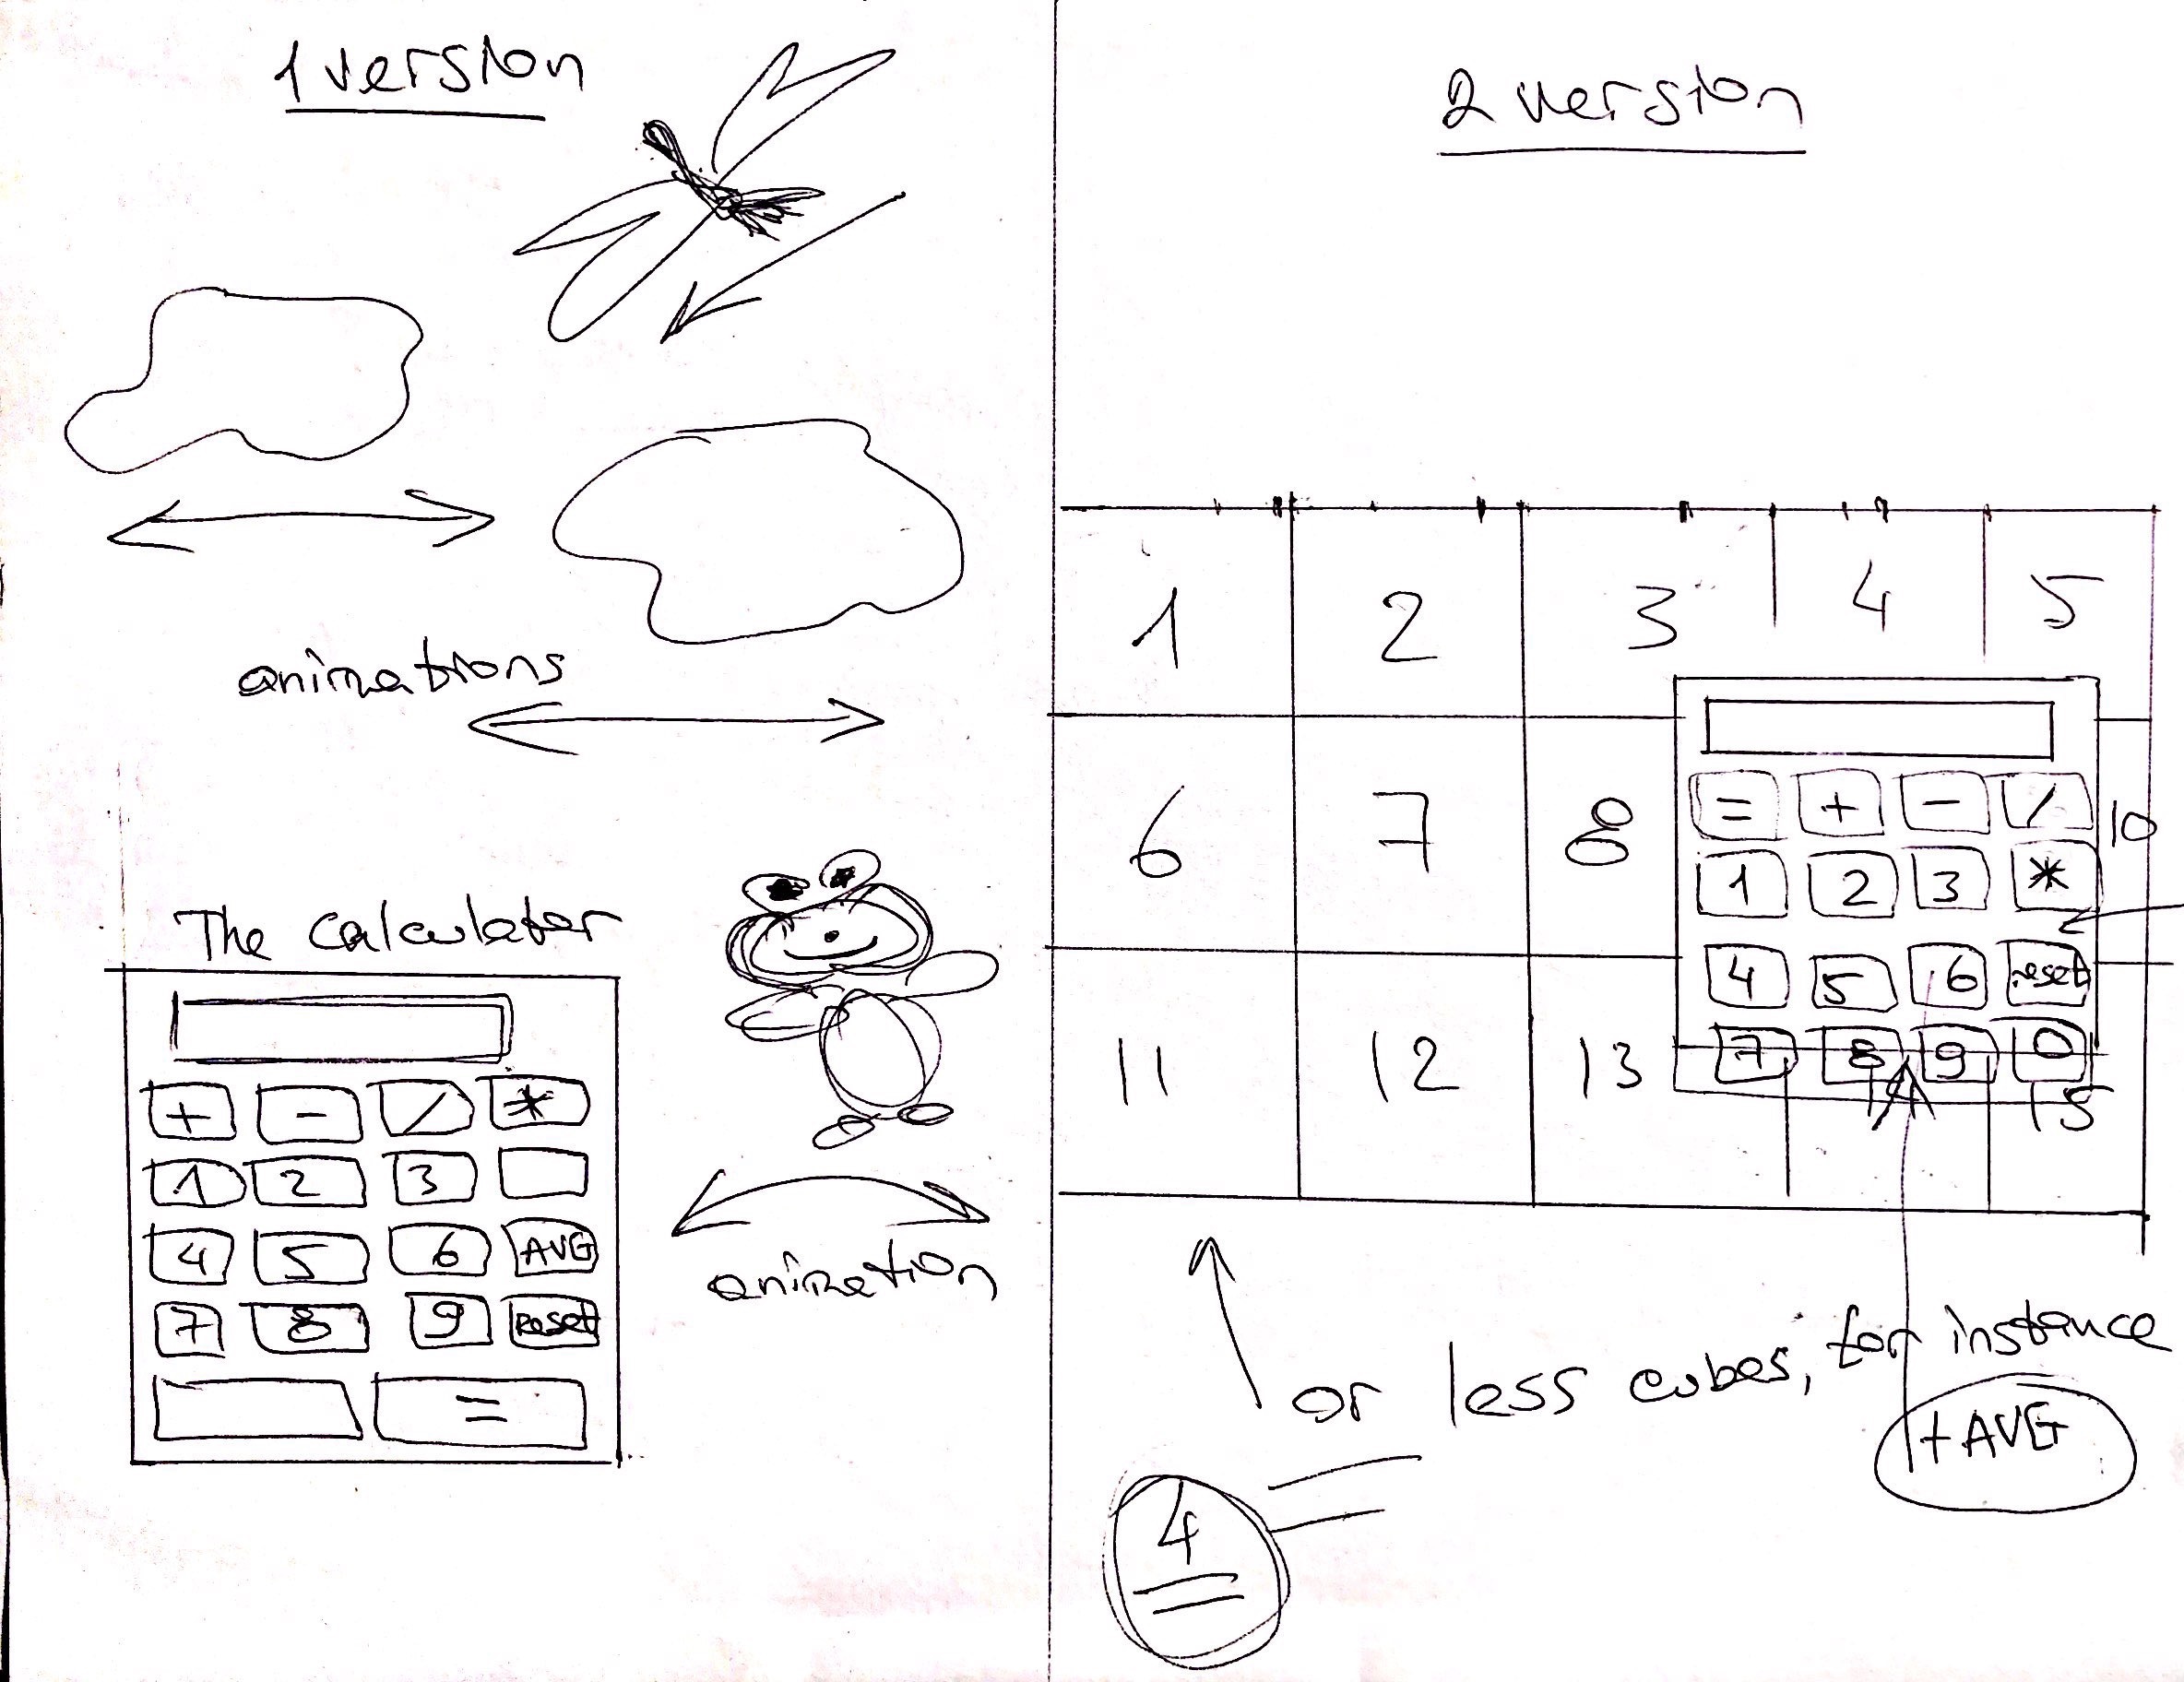 1 version
animations
The calculater
+ - / *
1 2 3
4 5 6 AVG
7 8 9 reset
=
animation
2 version
1 2 3 4 5
6 7 8 10
11 12 13 15
= + - /
1 2 3 *
4 5 6 reset
7 8 9 0
or less cubes, for instance
4
+ AVG